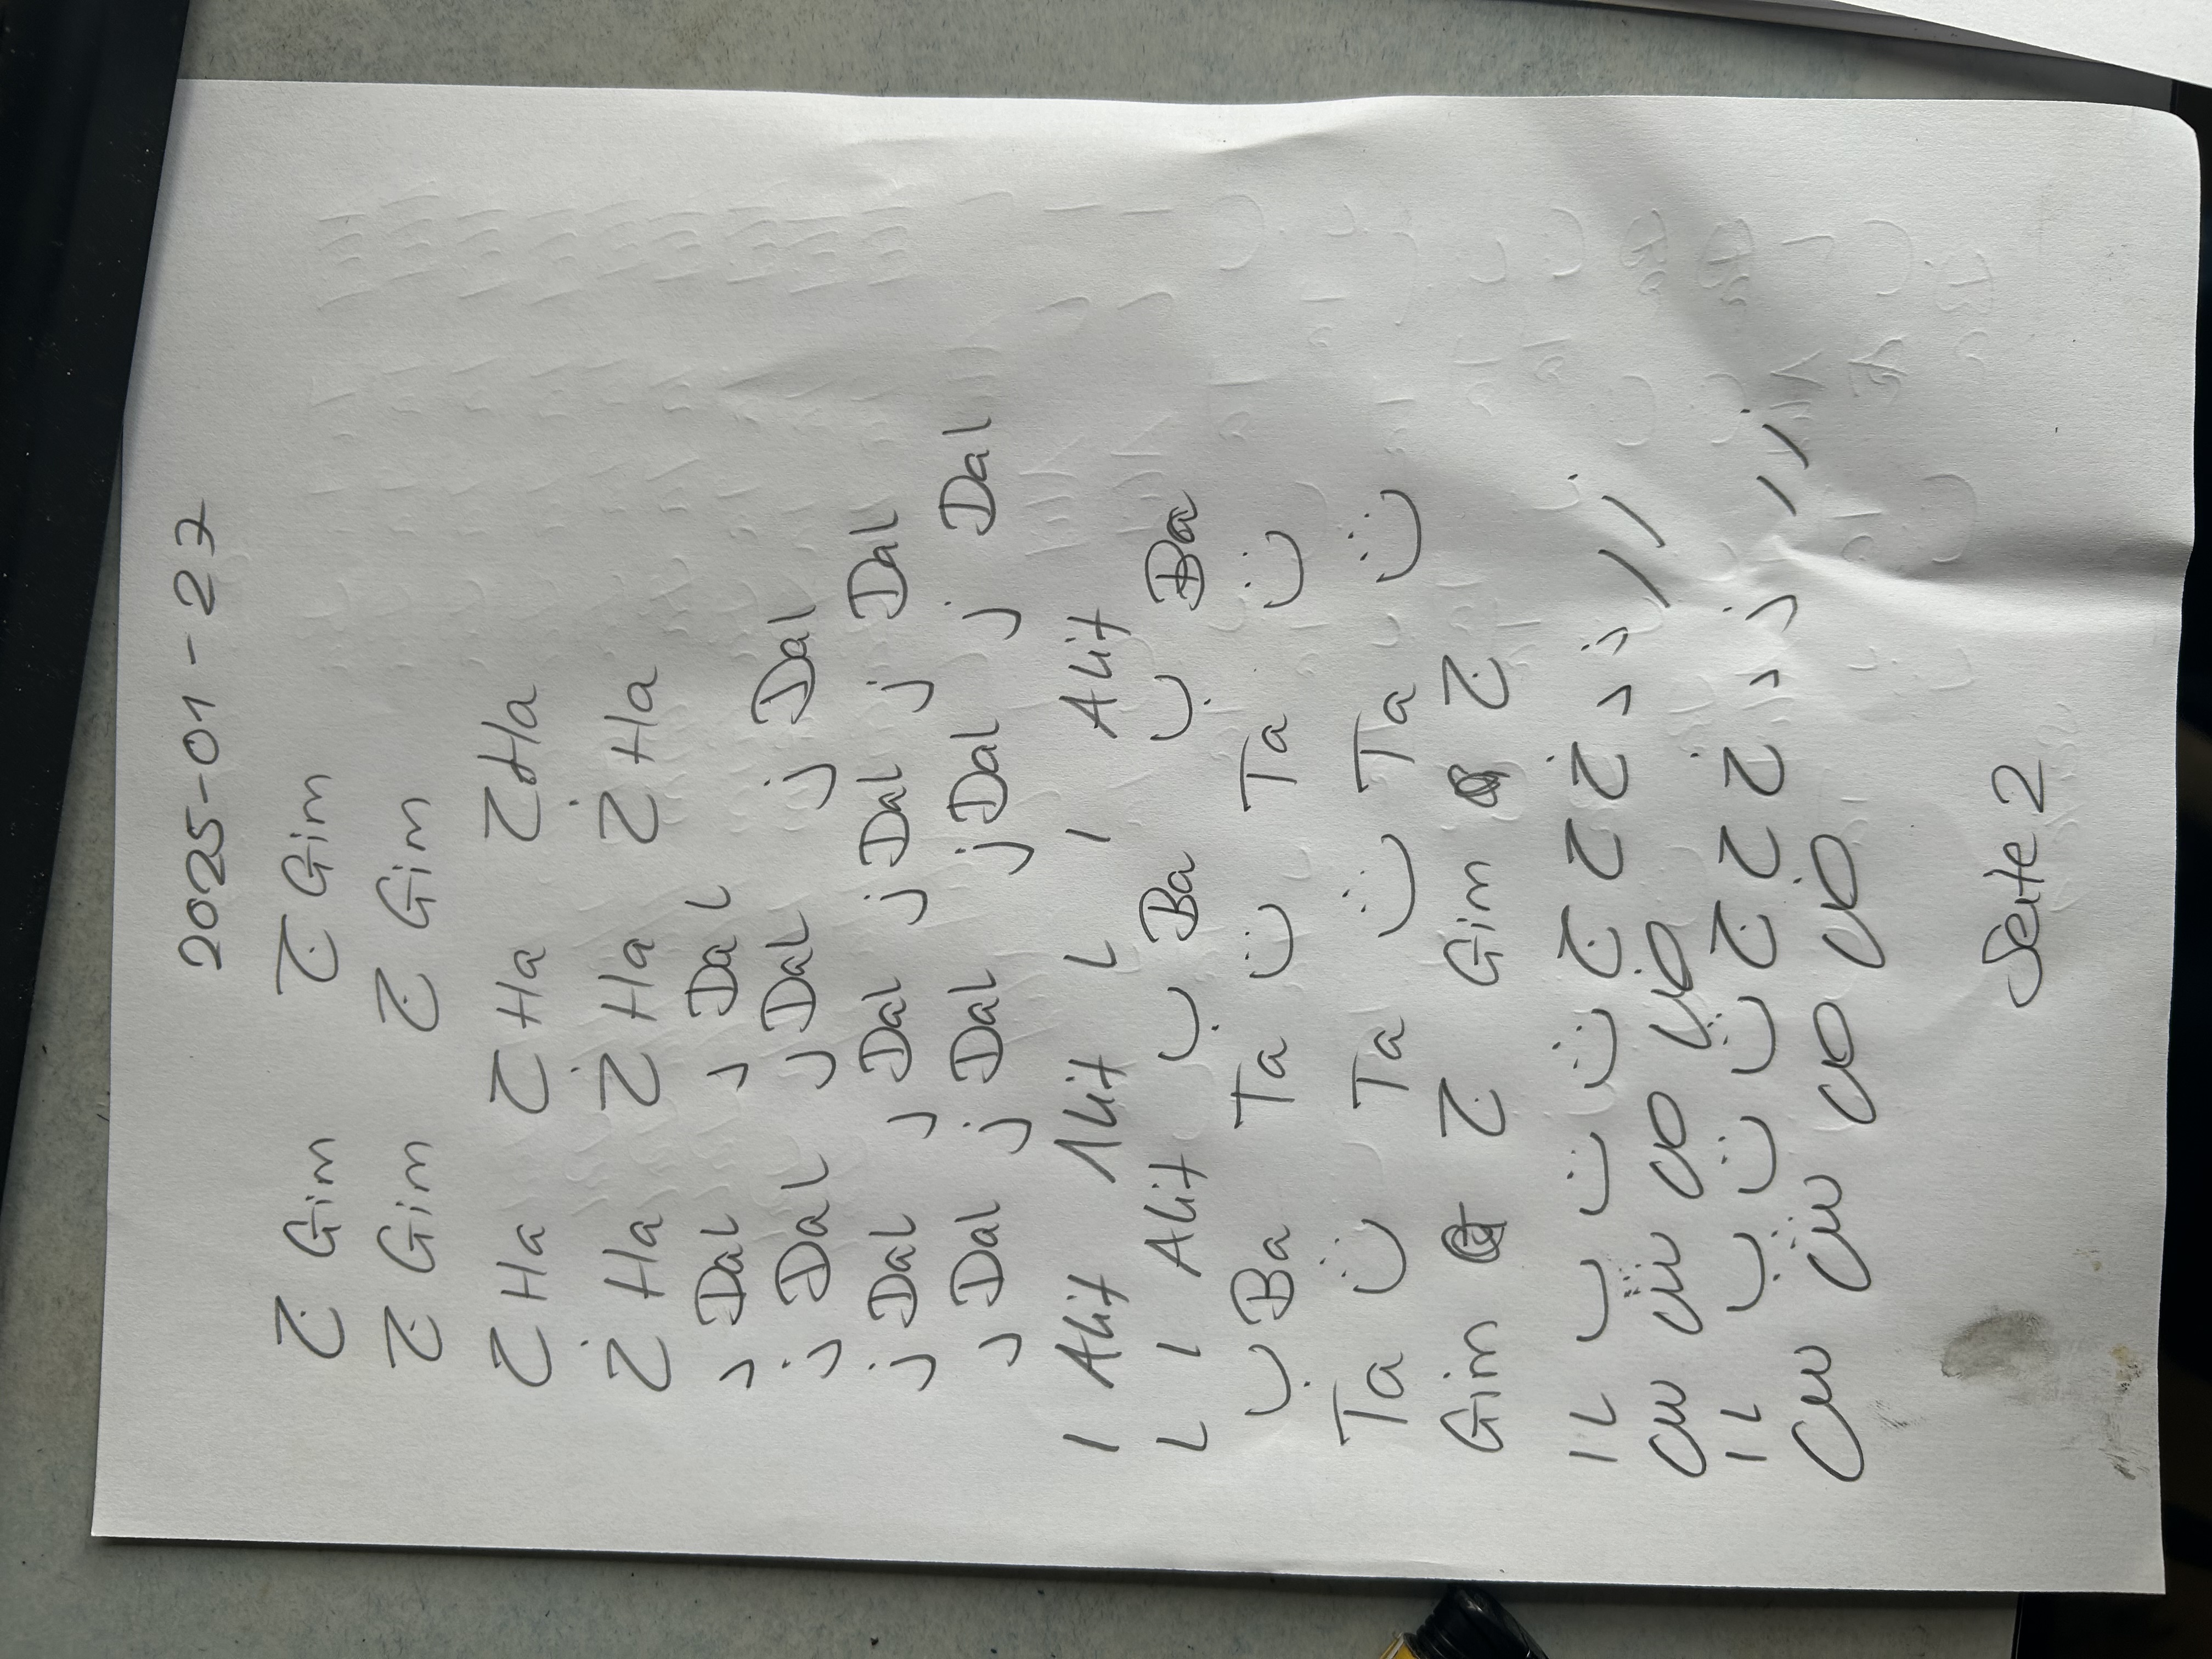 2025-01-27
ج Gim ج Gim
ج Gim ج Gim
ح Ha ح Ha ح Ha
خ Ha خ Ha خ Ha
د Dal د Dal
ذ Dal د Dal ذ Dal
ذ Dal د Dal ذ Dal ذ Dal
د Dal ذ Dal ذ Dal ذ Dal
ا Alit Alit L ا Alit
L ا Alit ب Ba ب Ba
ب Ba Ta ت Ta ت
Ta ت Ta ت Ta ت
Gim ج Gim ج
ا L ب ت ث ج ح خ د ذ ر ز
س ش ص ض
ا L ب ت ث ج ح خ د ذ ر ز
س ش ص ض
Seite 2